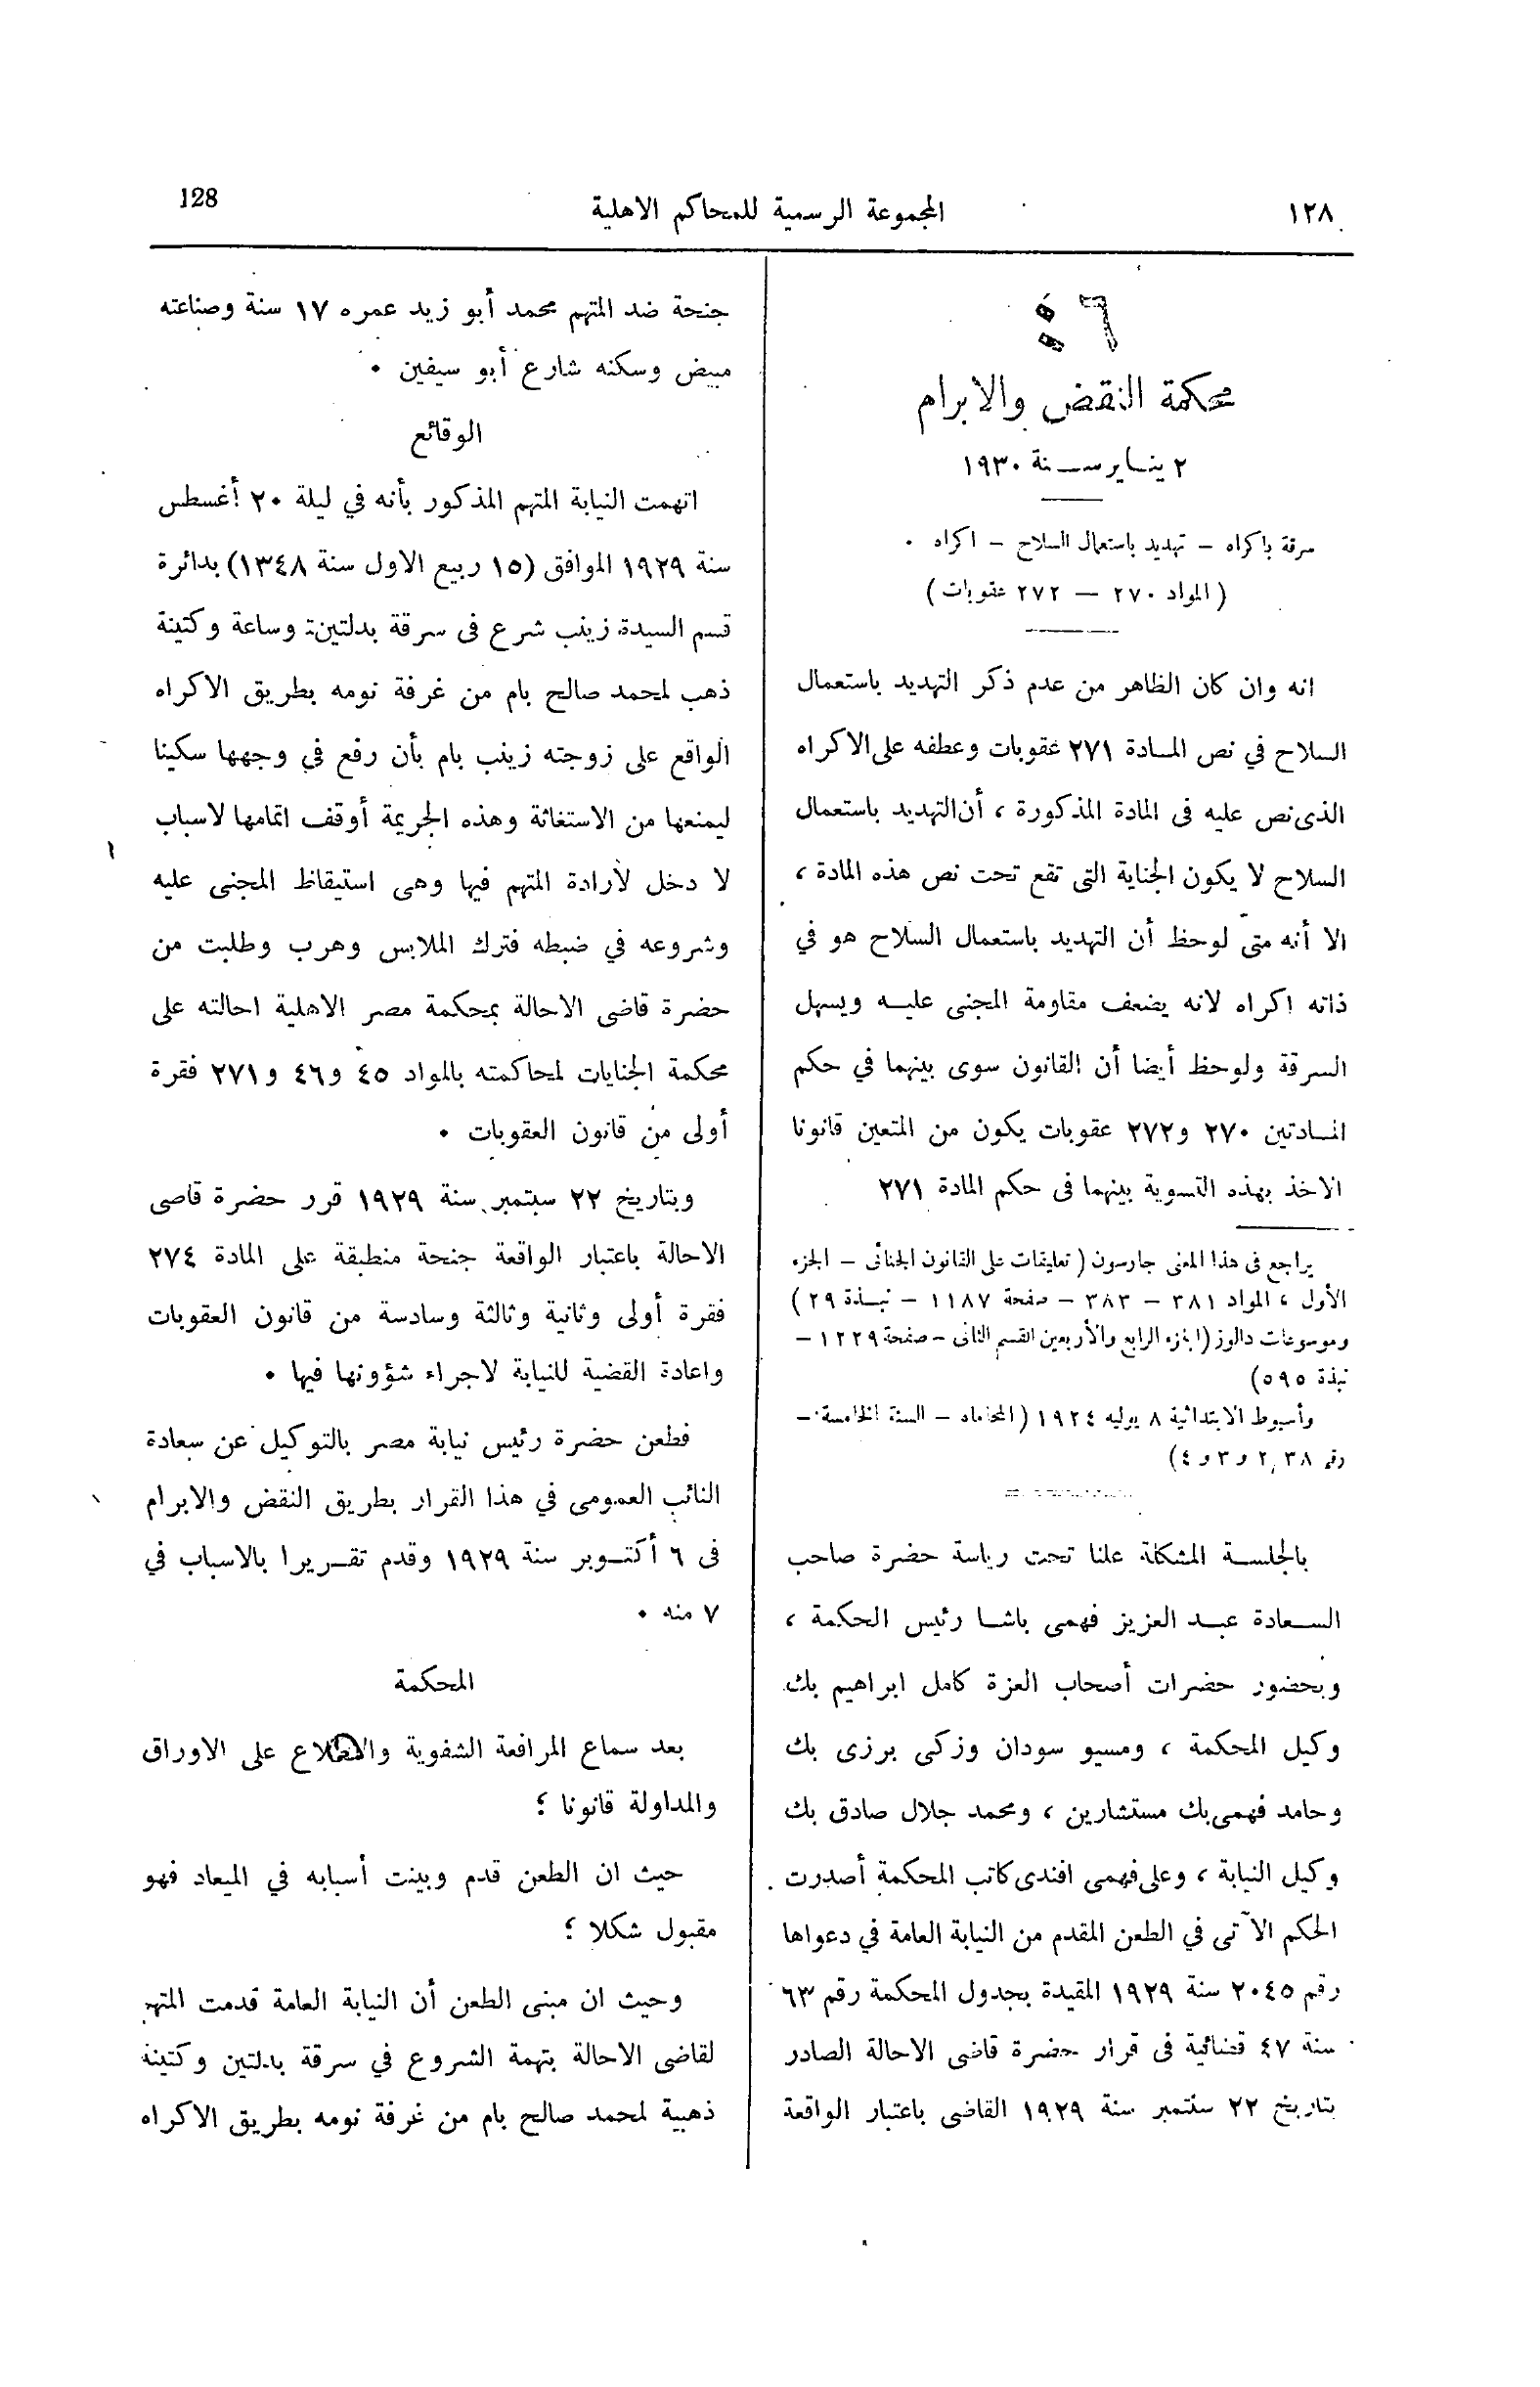 ١٢٨
المجموعة الرسمية للمحاكم الاهلية
128
٥٦
محكمة النقض والابرام
٢ ينــاير ســنة ١٩٣٠
سرقة باكراه – تهديد باستعمال السلاح – اكراه .
(المواد ٢٧٠ – ٢٧٢ عقوبات)
انه وان كان الظاهر من عدم ذكر التهديد باستعمال
السلاح في نص المــادة ٢٧١ عقوبات وعطفه على الاكراه
الذى نص عليه فى المادة المذكورة ، أن التهديد باستعمال
السلاح لا يكون الجناية التى تقع تحت نص هذه المادة ،
الا أنه متى لوحظ أن التهديد باستعمال السلاح هو في
ذاته اكراه لانه يضعف مقاومة المجنى عليــه ويسهل
السرقة ولوحظ أيضا أن القانون سوى بينهما في حكم
المــادتين ٢٧٠ و٢٧٢ عقوبات يكون من المتعين قانونا
الاخذ بهذه التسوية بينهما فى حكم المادة ٢٧١
يراجع فى هذا المعنى جارسون (تعليقات على القانون الجنائى – الجزء
الأول ، المواد ٣٨١ – ٣٨٣ – صفحة ١١٨٧ – نبــذة ٢٩)
وموسوعات دالوز (الجزء الرابع والأربعين القسم الثانى – صفحة ١٢٢٩ –
نبذة ٥٩٥)
وأسيوط الابتدائية ٨ يوليه ١٩٢٤ (المحاماه – السنة الخامسة –
رقم ٢,٣٨ و٣ و٤)
بالجلســة المشكلة علنا تحت رياسة حضرة صاحب
الســعادة عبــد العزيز فهمى باشــا رئيس المحكمة ،
وبحضور حضرات أصحاب العزة كامل ابراهيم بك
وكيل المحكمة ، ومسيو سودان وزكى برزى بك
وحامد فهمى بك مستشارين ، ومحمد جلال صادق بك
وكيل النيابة ، وعلى فهمى افندى كاتب المحكمة أصدرت
الحكم الآتى في الطعن المقدم من النيابة العامة في دعواها
رقم ٢٠٤٥ سنة ١٩٢٩ المقيدة بجدول المحكمة رقم ٦٣
سنة ٤٧ قضائية فى قرار حضرة قاضى الاحالة الصادر
بتاريخ ٢٢ سبتمبر سنة ١٩٢٩ القاضى باعتبار الواقعة
جنحة ضد المتهم محمد أبو زيد عمره ١٧ سنة وصناعته
مبيض وسكنه شارع أبو سيفين .
الوقائع
اتهمت النيابة المتهم المذكور بأنه في ليلة ٢٠ أغسطس
سنة ١٩٢٩ الموافق (١٥ ربيع الاول سنة ١٣٤٨) بدائرة
قسم السيدة زينب شرع فى سرقة بدلتين وساعة وكتينة
ذهب لمحمد صالح بام من غرفة نومه بطريق الاكراه
الواقع على زوجته زينب بام بأن رفع في وجهها سكينا
ليمنعها من الاستغاثة وهذه الجريمة أوقف اتمامها لاسباب
لا دخل لأرادة المتهم فيها وهى استيقاظ المجنى عليه
وشروعه في ضبطه فترك الملابس وهرب وطلبت من
حضرة قاضى الاحالة بمحكمة مصر الاهلية احالته على
محكمة الجنايات لمحاكمته بالمواد ٤٥ و٤٦ و٢٧١ فقرة
أولى من قانون العقوبات .
وبتاريخ ٢٢ سبتمبر سنة ١٩٢٩ قرر حضرة قاضى
الاحالة باعتبار الواقعة جنحة منطبقة على المادة ٢٧٤
فقرة أولى وثانية وثالثة وسادسة من قانون العقوبات
واعادة القضية للنيابة لاجراء شؤونها فيها .
فطعن حضرة رئيس نيابة مصر بالتوكيل عن سعادة
النائب العمومى في هذا القرار بطريق النقض والابرام
فى ٦ أكتــوبر سنة ١٩٢٩ وقدم تقــريرا بالاسباب في
٧ منه .
المحكمة
بعد سماع المرافعة الشفوية والاطلاع على الاوراق
والمداولة قانونا ؛
حيث ان الطعن قدم وبينت أسبابه في الميعاد فهو
مقبول شكلا ؛
وحيث ان مبنى الطعن أن النيابة العامة قدمت المتهم
لقاضى الاحالة بتهمة الشروع في سرقة بدلتين وكتينة
ذهبية لمحمد صالح بام من غرفة نومه بطريق الاكراه